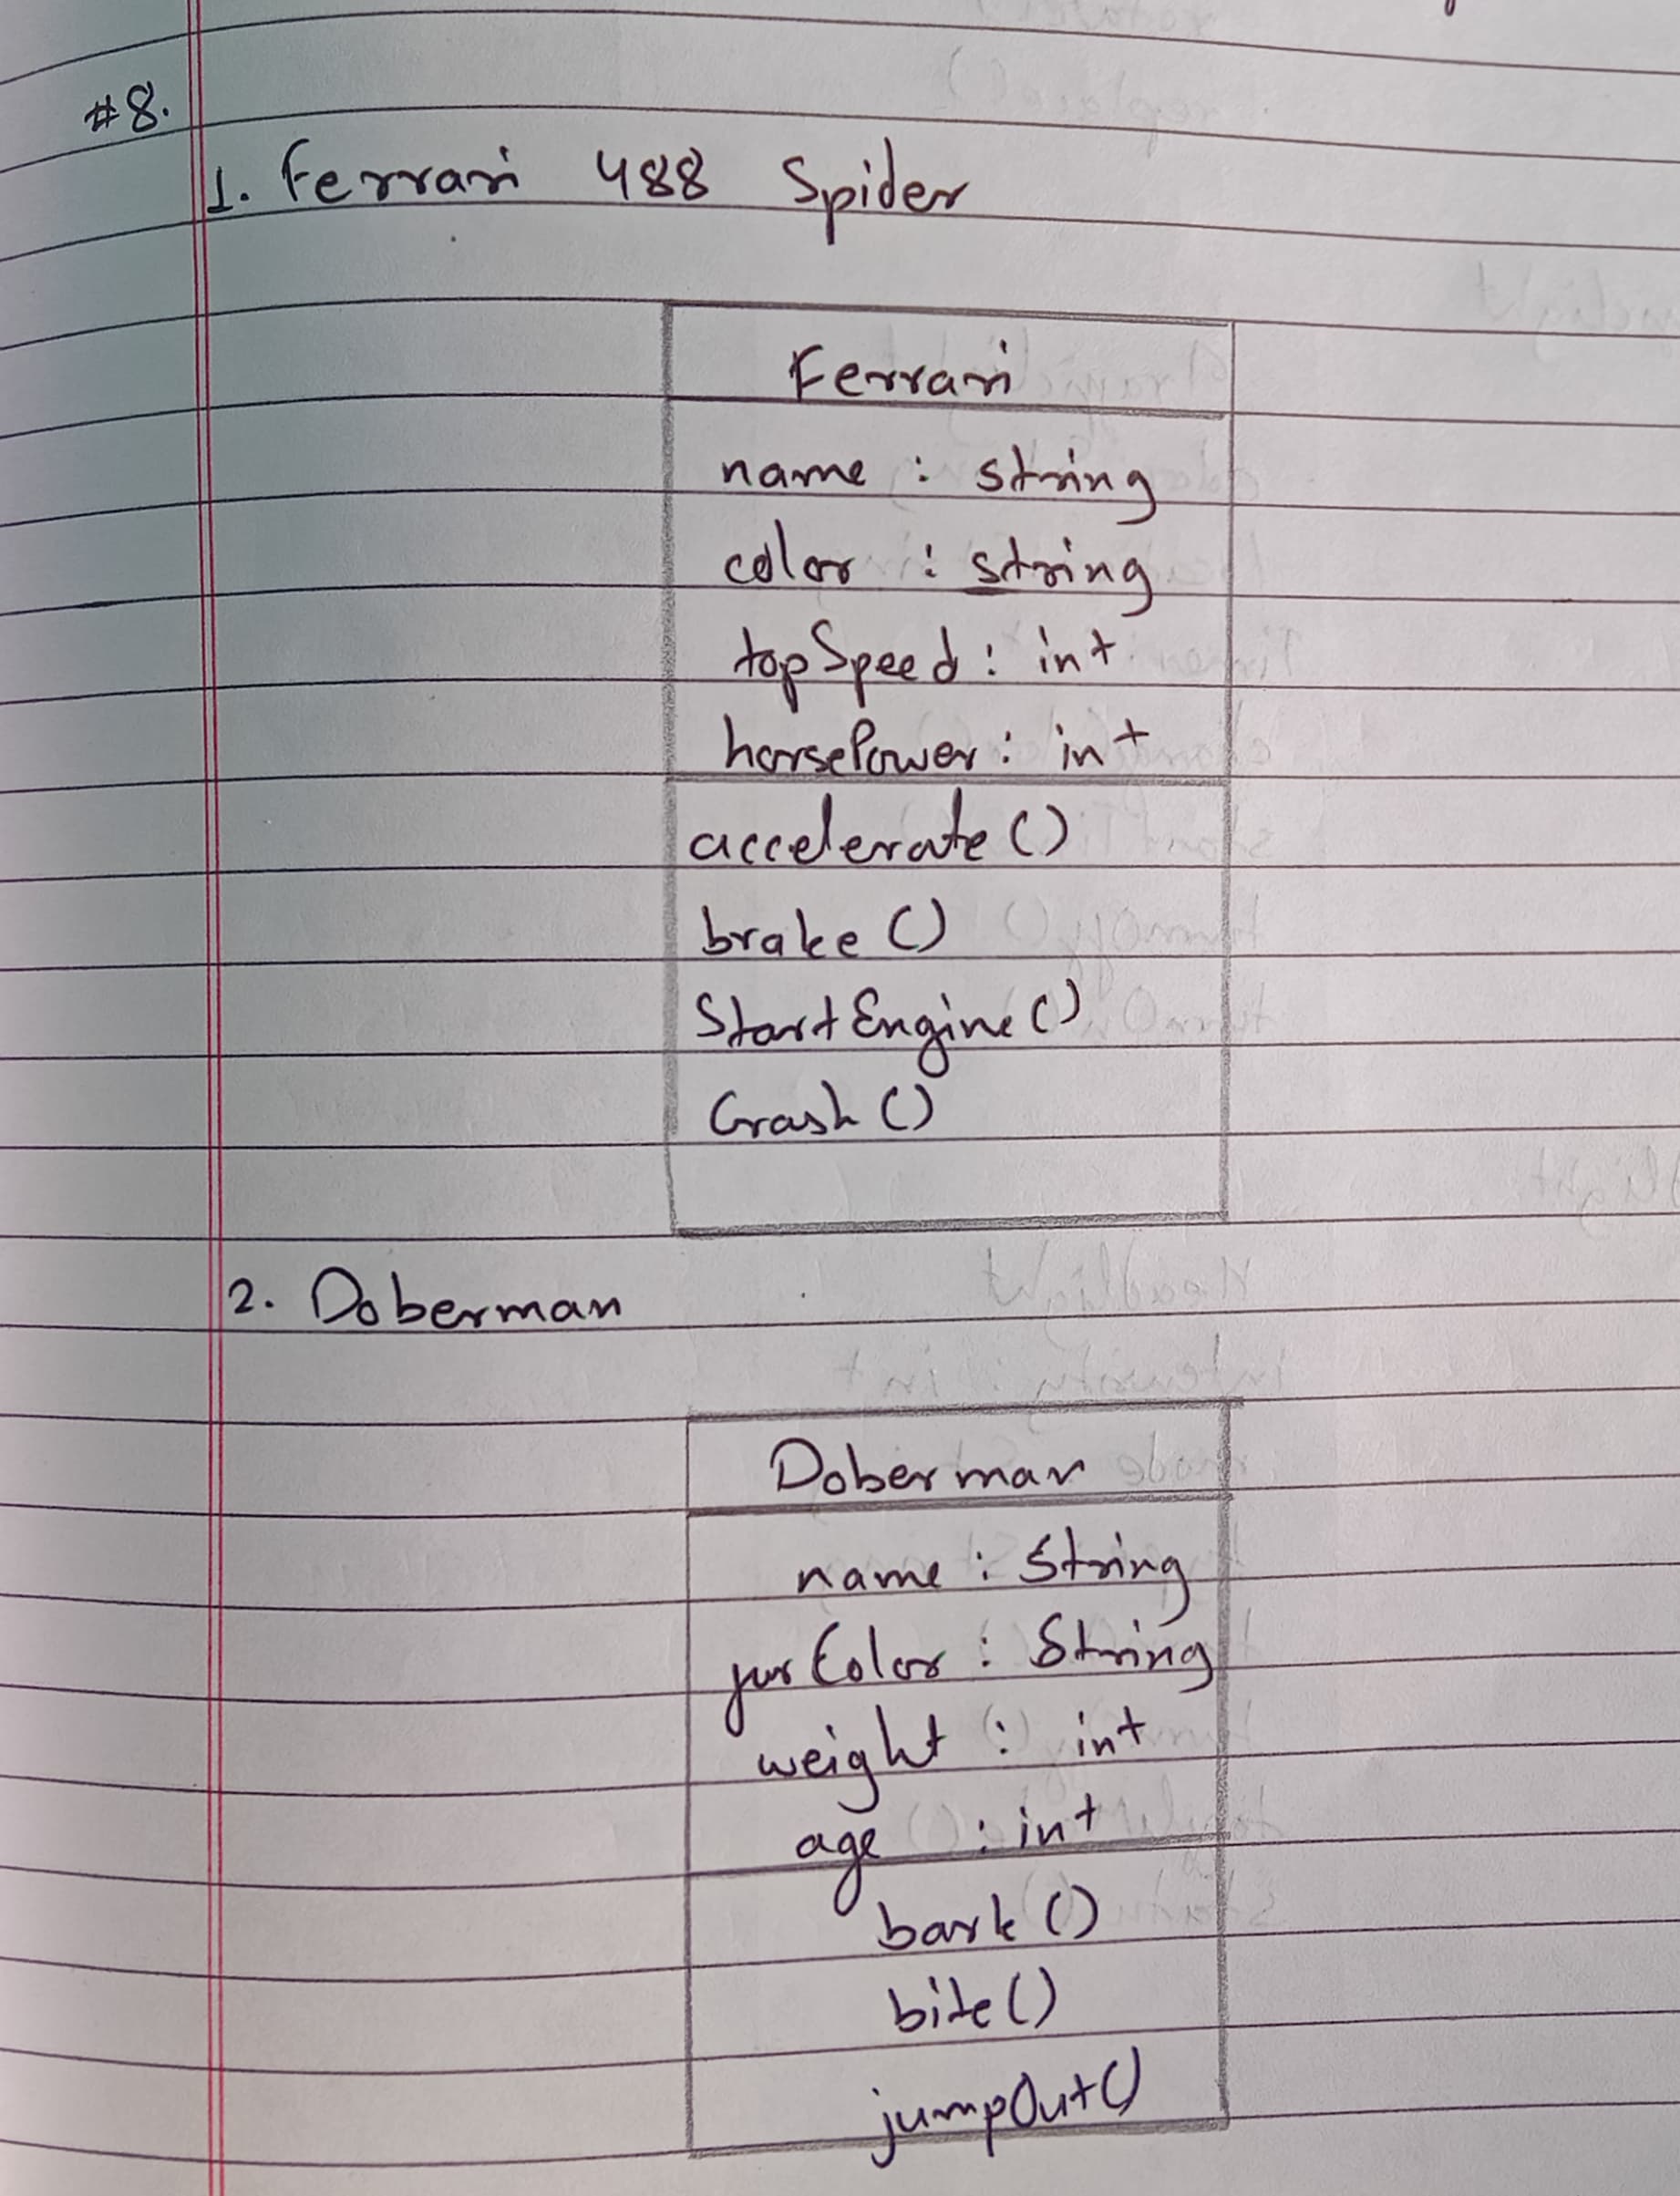 #8.
1. Ferrari 488 Spider
Ferrari
name : string
color : string
topSpeed : int
horsePower : int
accelerate ()
brake ()
StartEngine ()
Crash ()
2. Doberman
Doberman
name : String
furColor : String
weight : int
age : int
bark ()
bite ()
jumpOut ()